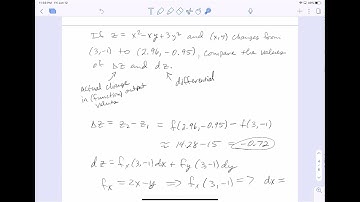 If z = x² - xy + 3y² and (x,y) changes from
(3,-1) to (2.96, -0.95), compare the values
of Δz and dz.
actual change
in (function) output
values
differential
Δz = z₂ - z₁ = f(2.96, -0.95) - f(3,-1)
≈ 14.28 - 15 = -0.72
dz = fₓ(3,-1)dx + f_y(3,-1)dy
fₓ = 2x - y ⇒ fₓ(3,-1) = 7 dx =